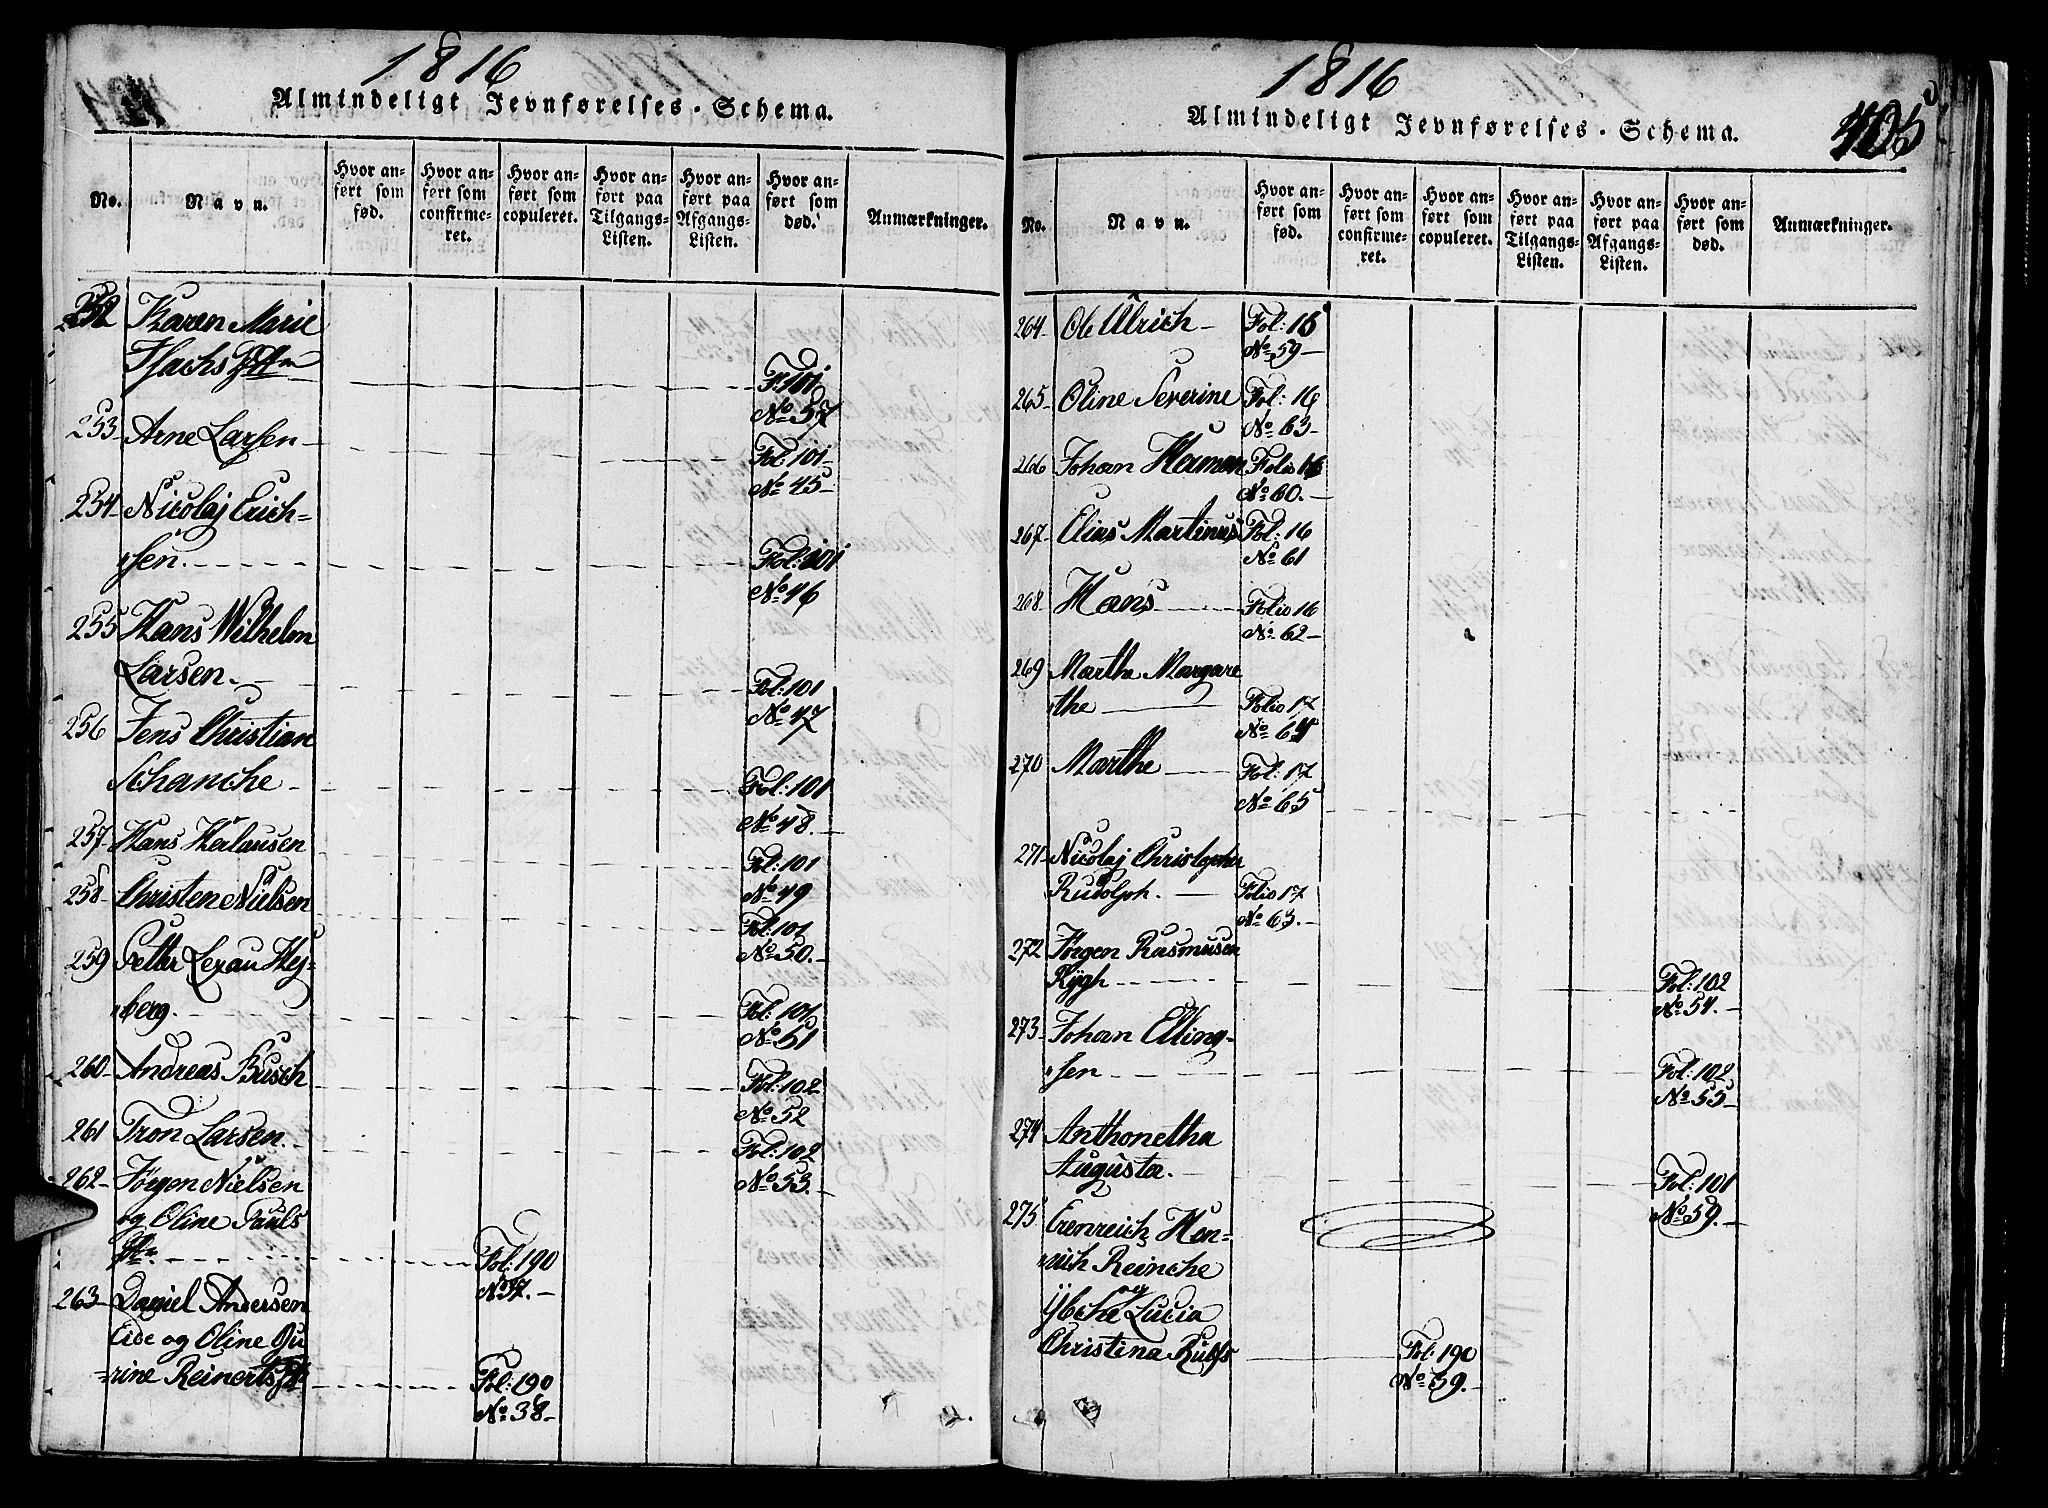 1816
Almindeligt Jevnførelses-Schema.
No.
Navn.
Hvor anført som fød.
Hvor anført som confirmeret.
Hvor anført som copuleret.
Hvor anført paa Tilgangs-Listen.
Hvor anført paa Afgangs-Listen.
Hvor anført som død.
Anmærkninger.
252 Karen Marie
F: 101
No 57
253 Arne Larsen
Fol: 101
No 45
254 Nicolaj Erich=
sen.
Fol: 101
No 46
255 Hans Wilhelm
Larsen.
Fol: 101
No 47
256 Jens Christian
Schanche
Fol: 101
No 48.
257 Hans
Fol: 101
No 49
258 Christen Nielsen
Fol: 101
No 50.
259 Petter Lexau Hej=
berg.
Fol: 101
No 51
260 Andreas Busch
Fol: 102
No 52
261 Tron Larsen.
Fol: 102
No 53.
262 Jørgen Nielsen
og Oline Pauls
Fol: 190
No 37.
263 Daniel Andersen
Eide og Oline Qu
=rine Reinerts
Fol: 190
No 38
1816
Almindeligt Jevnførelses-Schema.
405
No.
Navn.
Hvor anført som fød.
Hvor anført som confirmeret.
Hvor anført som copuleret.
Hvor anført paa Tilgangs-Listen.
Hvor anført paa Afgangs-Listen.
Hvor anført som død.
Anmærkninger.
264 Ole Ulrich Fol: 16
No 59
265 Oline Severine Fol: 16
No 63
266 Johan Herman Folio 16
No 60.
267 Elias Martinus Fol: 16
No 61
268 Hans Folio 16
No 62
269 Martha Margare
the Folio 17
No 64
270 Marthe Fol: 17
No 65
271 Nicolaj Christopher
Rudolph. Folio 17
No 63.
272 Jørgen Rasmusen
Rygh
Fol: 102
No 54.
273 Johan Elling=
sen
Fol: 102
No 55
274 Anthonetha
Augusta.
Fol: 101
No 59.
275 Erenreich Hen=
rich Reinche
og
Lucia
Christina Rulfs
Fol: 190
No 39.